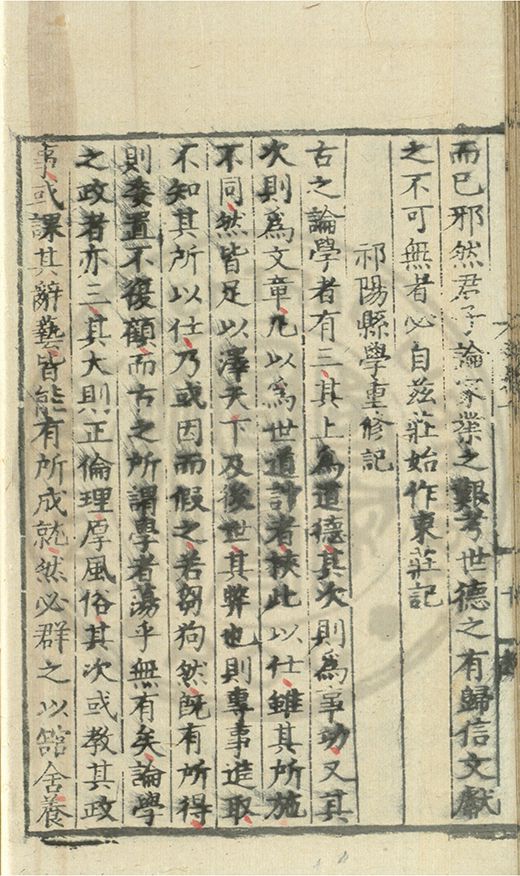 而已邪然君子論家業之艱考世德之有歸信文獻
之不可無者必自茲莊始作東莊記
祁陽縣學重修記
古之論學者有三其上爲道德其次則爲事功又其
次則爲文章凡以爲世道計者挾此以仕雖其所施
不同然皆足以澤天下及後世其弊也則專事進取
不知其所以仕乃或因而假之若芻狗然既有所得
則委置不復顧而古之所謂學者蕩乎無有矣論學
之政者亦三其大則正倫理厚風俗其次或教其政
事或課其辭藝皆能有所成就然必群之以舘舍養